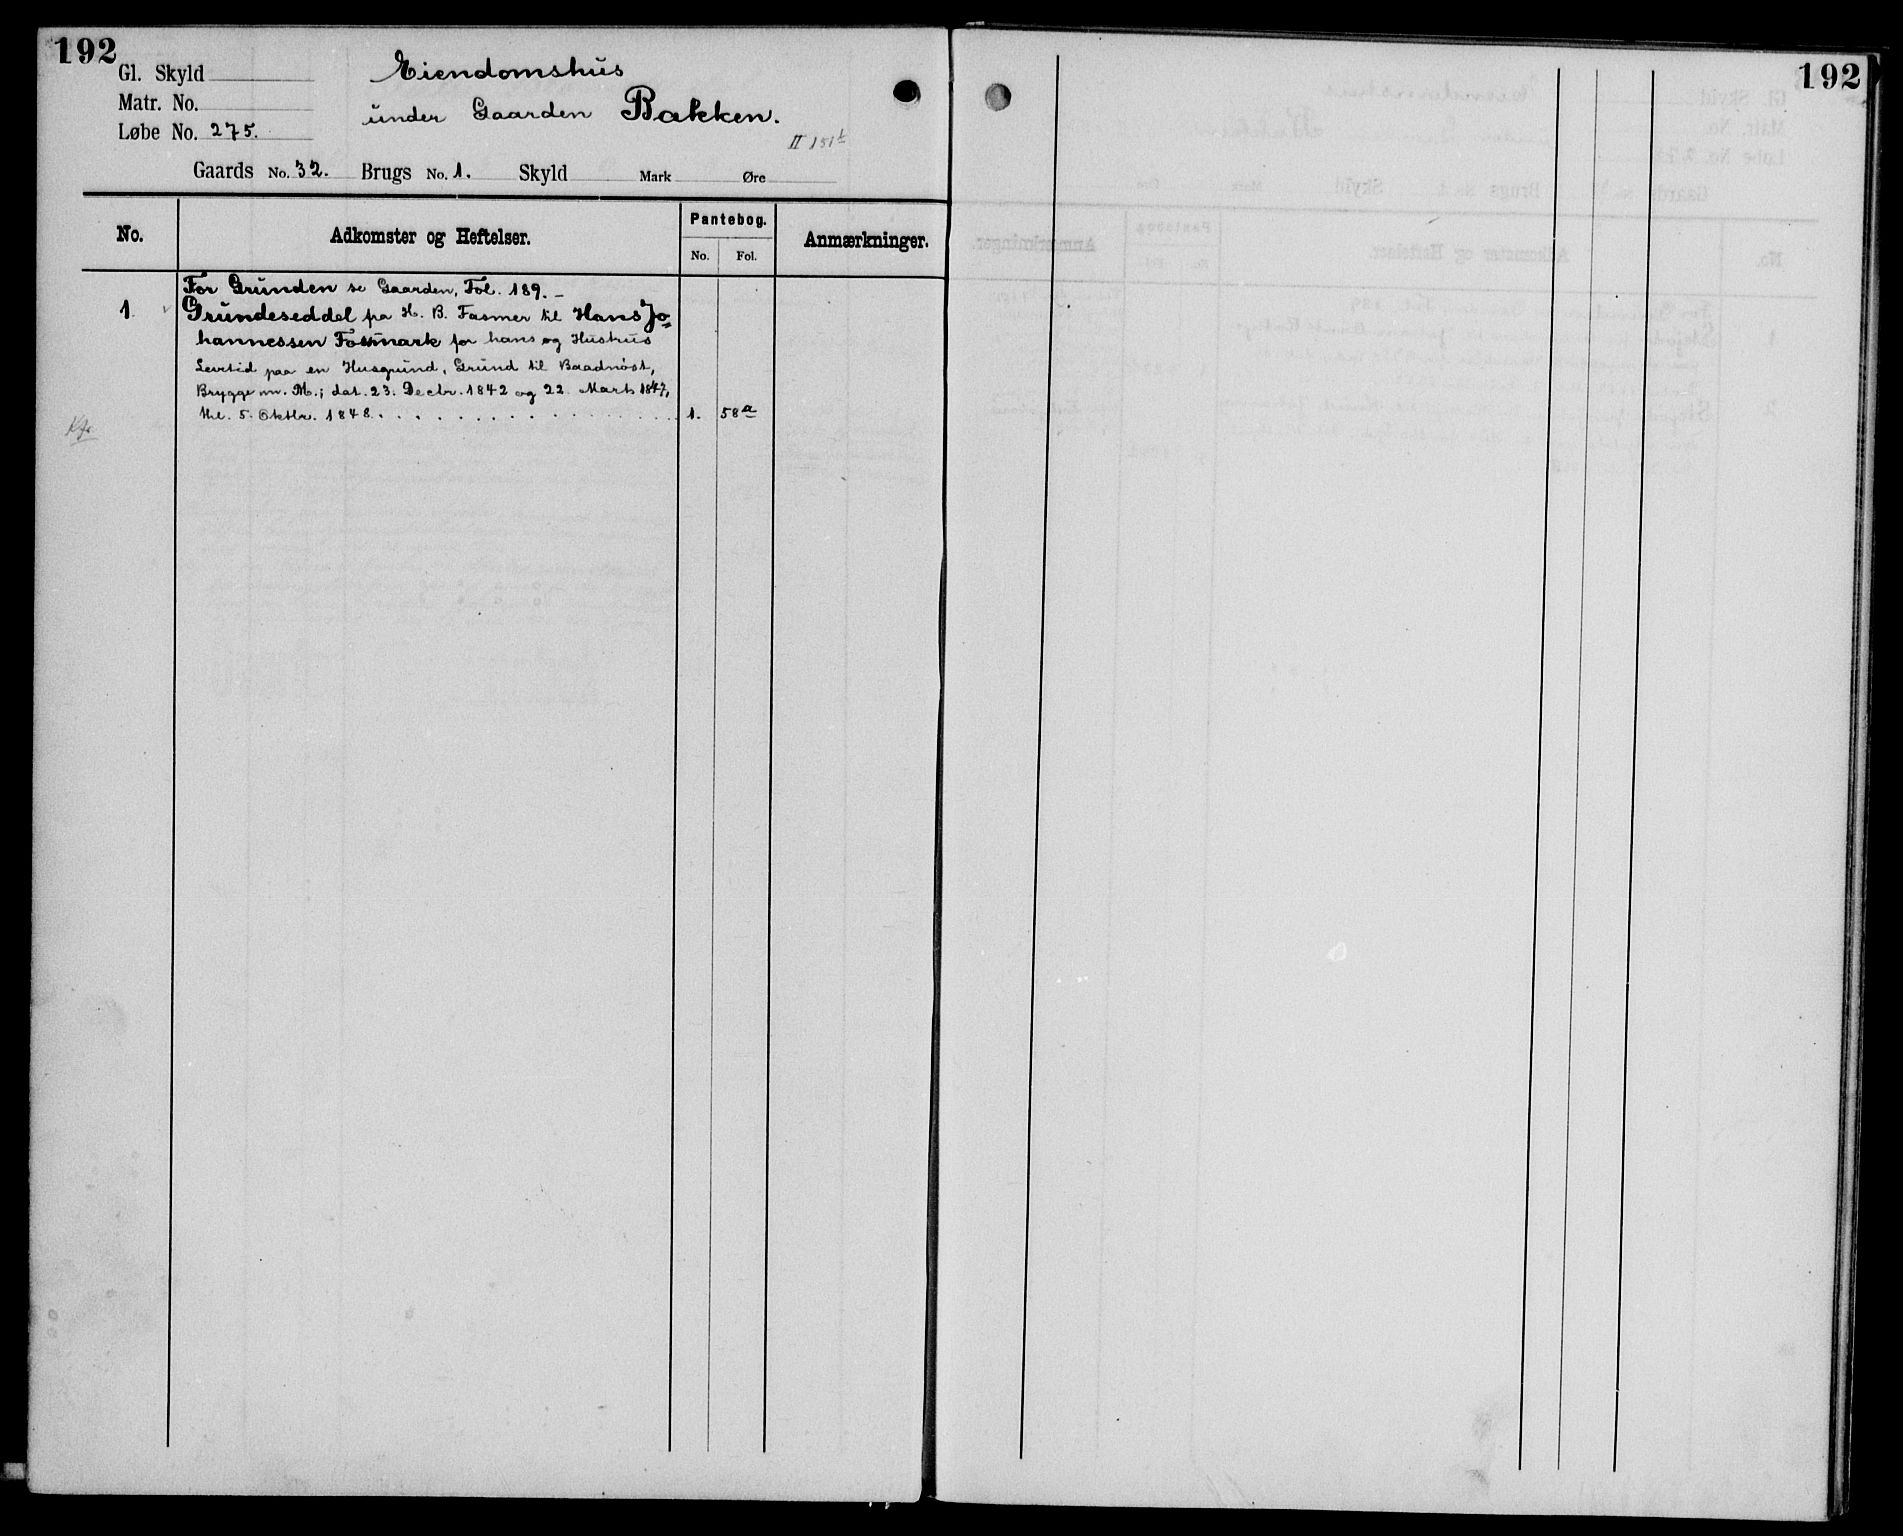 192
Gl. Skyld
Matr. No.
Løbe No. 275.
Eiendomshus
under Gaarden Bakken.
II 151
Gaards No. 32. Brugs No. 1. Skyld Mark Øre
No. Adkomster og Heftelser. Pantebog. Anmærkninger.
No. Fol.
For Grunden se Gaarden, Fol. 189. –
1 Grundeseddel fra H. B. Fasmer til Hans Jo-
hannessen Fosmark for hans og Hustrus
Levetid paa en Husgrund, Grund til Baadnøst,
Brygge m. M.; dat. 23. Decbr. 1842 og 22. Marts 1847,
thl. 5. Oktbr. 1848. 1. 58a
192